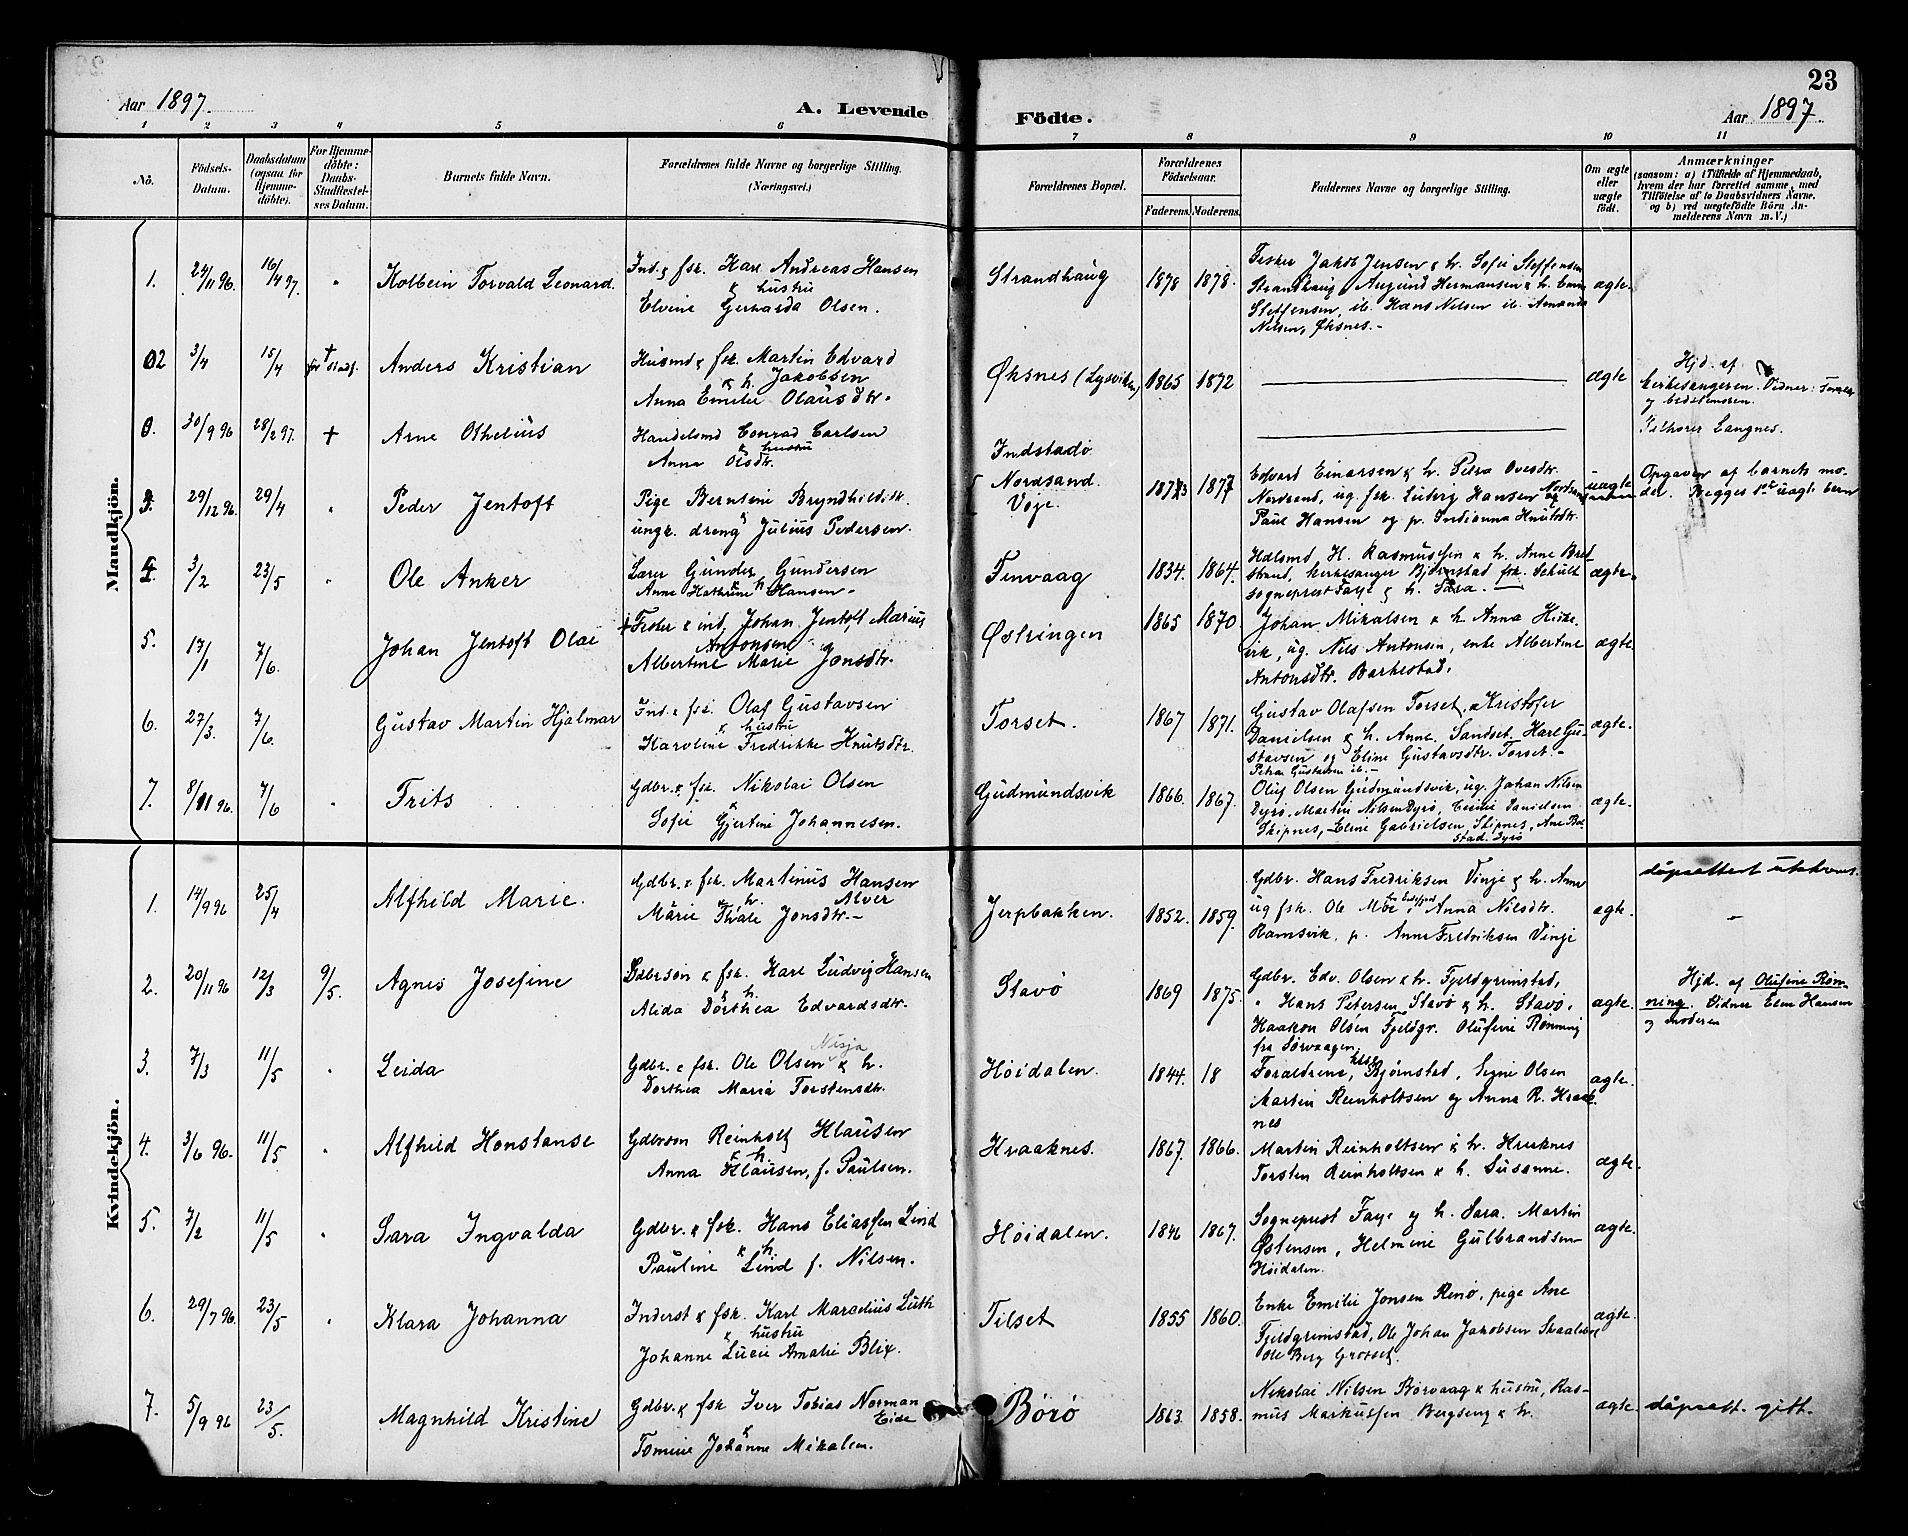 23
Aar 1897.
A. Levende
Födte.
Aar 1897
1 2 3 4 5 6 7 8 9 10 11
No.
Födsels-
Datum.
Daabsdatum
(ogsaa for
Hjemme-
döbte).
For Hjemme-
döbte:
Daabs-
Stadfæstel-
ses Datum.
Barnets fulde Navn.
Forældrenes fulde Navne og borgerlige Stilling.
(Næringsvei.)
Forældrenes Bopæl.
Forældrenes
Födselsaar.
Faderens.
Moderens.
Faddernes Navne og borgerlige Stilling.
Om ægte
eller
uægte
födt.
Anmærkninger
(saasom: a) i Tilfælde af Hjemmedaab,
hvem der har forrettet samme, med
Tilföielse af to Daabsvidners Navne,
og b) ved uægtefödte Börn An-
melderens Navn m. V.)
Mandkjön.
1. 24/11 96. 16/4 97. " Kolbein Torvald Leonard.
Ind. & fsk. Karl Andreas Hansen
& hustru
Elvine Gerharda Olsen.
Strandhaug 1878 1878.
Fisker Jakob Jensen & h. Sofie Steffensen
Strandhaug, Augund Hermansen & h. Emma
Steffensen, ib. Hans Nilsen ib. Amanda
Nilsen, Øksnes.-
ægte.
02 3/4 15/4 + før stadf. Anders Kristian
Husmd & fsk. Martin Edvard
& h. Jakobsen
Anna Emilie Olausdtr.
Øksnes (Lysviken) 1865 1872
ægte
Hjd. af
kirkesangeren. Vidner:
og bedstemoren.
0. 30/9 96 28/2 97. + Arne Othelius
Handelsmd Conrad Carlsen
& hustru
Anna Olsdtr.
Indstadø
Langnes.
3. 29/12 96. 29/4 " Peder Jentoft
Pige Berntine Bryndhildsdtr.
&
ungk. dreng Julius Pedersen.
Nordsand.
Veje.
1873 1877
Edvard Einarsen & h. Petra Ovesdtr.
Nordsand, ug. fsk. Ludvig Hansen Nordsand
Paul Hansen og p. Indianna Knutsdtr.
uægte
Opgaven af barnets mo-
der. Begges 1ste uægte barn
4. 3/2 23/5 " Ole Anker
Lærer Gunder Gundersen
Anne Kathrine & h. Hansen.
Finvaag 1834. 1864.
Hdlsmd. H. Rasmussen & h. Anne Bred-
strand, kirkesanger Bjørnstad fsk. Schult
sogneprest Faye & h. Sara.
ægte.
5. 17/1 7/6. Johan Jentoft Olai
Fisker & ind. Johan Jentoft Marius
Antonsen &
Albertine Marie Jonsdtr.
Østringen 1865 1870
Johan Mikalsen & h. Anna
ug. Nils Antonsen, enke Albertine
Antonsdtr. Barkestad.
ægte.
6. 27/3. 7/6. Gustav Martin Hjalmar
Ind. & fsk. Olaf Gustavsen
& hustru
Karoline Fredrikke Knutsdtr.
Torset. 1867 1871.
Gustav Olafsen Torset, Kristofer
Danielsen & h. Anne. Sandset. Karl Gu-
stavsen og Eline Gustavsdtr. Torset.-
Petra Gustavsen ib.-
ægte.
7. 8/11 96. 7/6 " Frits
Gdbr. & fsk. Nikolai Olsen
&
Sofie Gjertine Johannesen.
Gudmundsvik 1866. 1867.
Oluf Olsen Gudmundsvik, ug. Johan Nilsen
Dyrø, Martin Nilsen Dyrø, Cecilie Danielsen
Skipnes, Eline Gabrielsen, Skipnes, Ane Bol-
stad. Dyrø
ægte.
Kvindekjön.
1. 14/9 96 25/4 Alfhild Marie.
Gdbr. & fsk. Martinus Hansen
& h. Alver
Marie Thale Jonsdtr.-
Jerpbakken. 1852. 1859.
Gdbr. Hans Fredriksen Vinje & h. Anne
ug fsk. Ole Moe, Anna Nilsdtr.
Ramsvik, p. Anne Fredriksen Vinje
ægte.
dåpsattest utskrevet.
2. 20/11 96 12/3 9/5. Agnes Josefine
Gdbrsøn & fsk. Karl Ludvig Hansen
& h.
Alida Dorthea Edvardsdtr.
Stavø 1869 1875.
Gdbr. Edv. Olsen & h. Fjeldgrimstad,
" Hans Petersen Stavø & h. Stavø,
Haakon Olsen Fjeldgr. Olufine Rønning
fra Sørvaagen.
ægte.
Hjd. af Olufine Røn-
ning. Vidner Elen Hansen
og moderen
3. 7/3 11/5 " Leida
Gdbr. & fsk. Ole Olsen Nisja & h.
Dorthea Maria Torstensdtr.
Høidalen. 1844. 18
Forældrene, Bjørnstad, Signe Olsen
Martin Reinholtsen og Anna R. Kraak-
nes
ægte.
4. 3/6 96. 11/5 " Alfhild Konstanse
Gdbrsøn Reinholt Klausen
& h.
Anna Klausen, f. Paulsen.
Kraaknes. 1867. 1866.
Martin Reinholtsen & h. Kraaknes
Torsten Reinholtsen & h. Susanne.
ægte.
5. 7/2 11/5 " Sara Ingvalda
Gdbr. & fsk. Hans Eliassen Lind
& h.
Pauline Lind f. Nilsen.
Høidalen. 1846 1867.
Sogneprest Faye og h. Sara. Martin
Østensen, Helmine Gulbrandsen
Høidalen.
ægte.
6. 29/7 96. 23/5 " Klara Johanna
Inderst & fsk. Karl Marselius Luth
& hustru
Johanne Lucie Amalie Blix.
Tilset 1855 1860.
Enke Emilie Jonsen Renø, pige Ane
Fjeldgrimstad, Ole Johan Jakobsen
Ole Berg Grotset.
ægte.
7. 5/9 96 23/5. Magnhild Kristine
Gdbr. & fsk Iver Tobias Norman
Eide
&
Tomine Johanne Mikalsen.
Børø 1863. 1858.
Nikolai Nilsen Børvaag & hustru, Ras-
mus Markussen Bergseng & h.
ægte
dåpsatt. gitt.